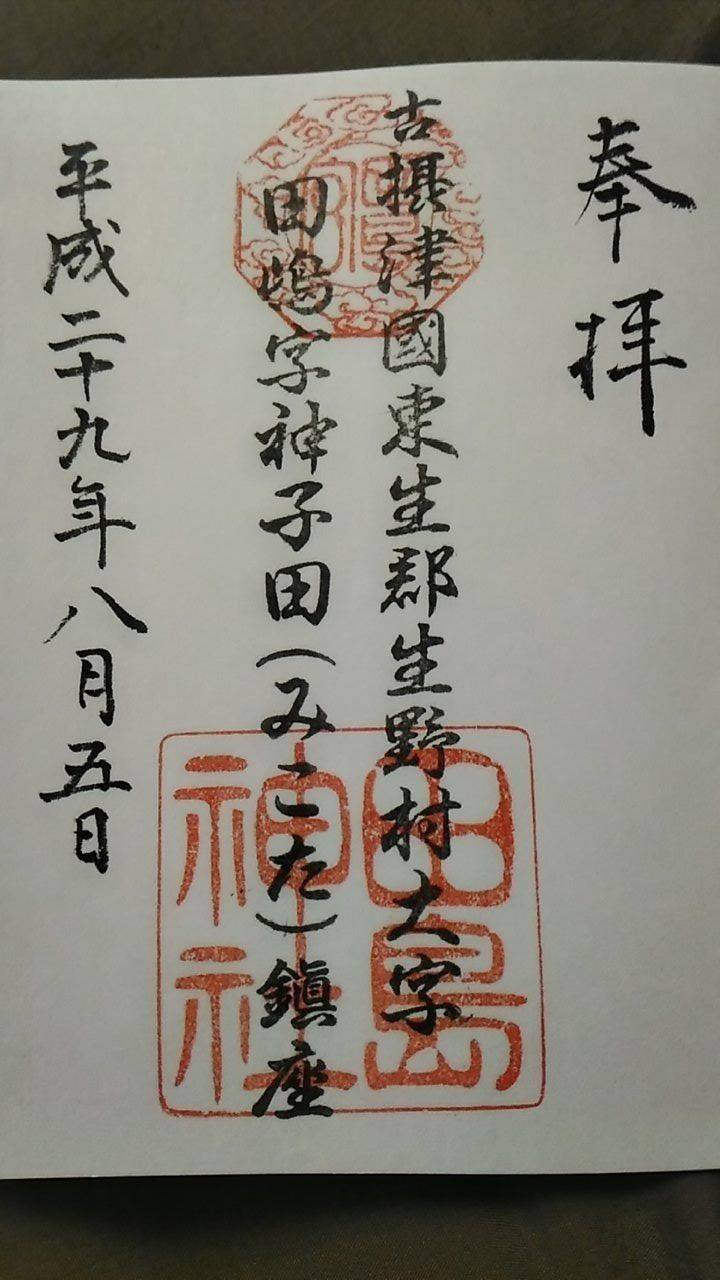 奉拝
古摂津國東生郡生野村大字
田嶋字神子田（みこた）鎮座
平成二十九年八月五日
田島神社